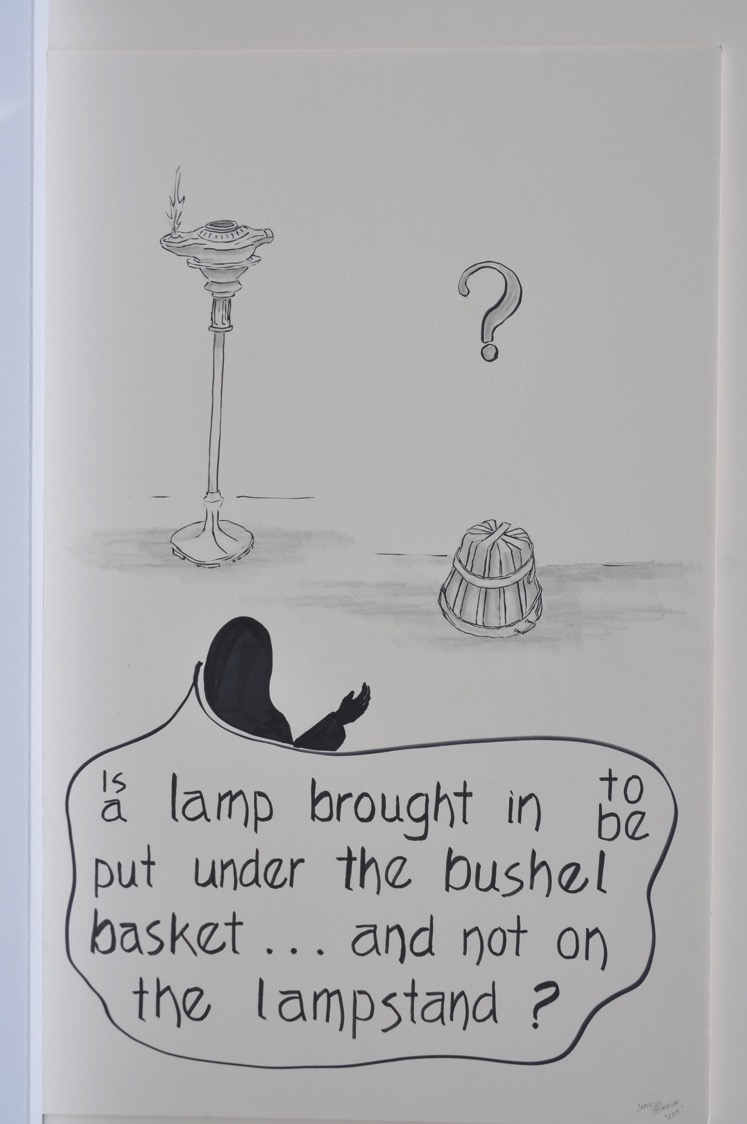 ?
Is a lamp brought in to be
put under the bushel
basket... and not on
the lampstand?